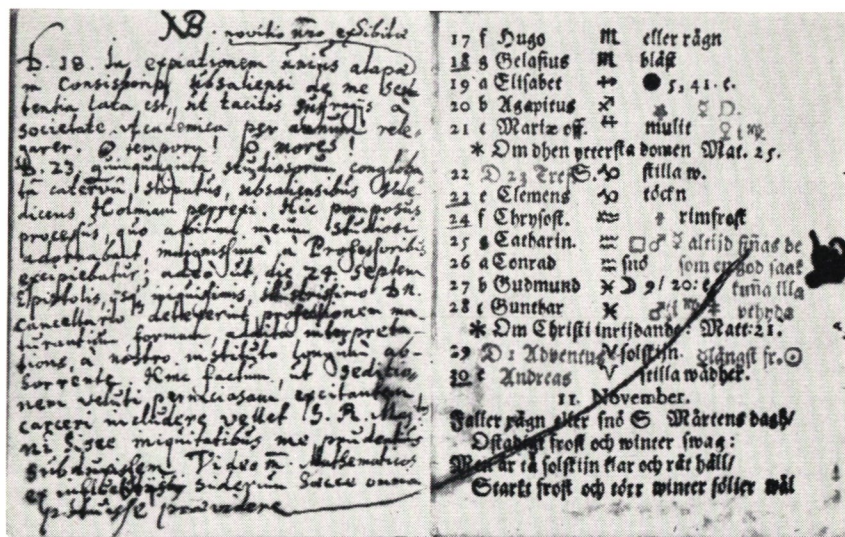 NB. novitio nro exhibita
D. 18. In expiationem unius alapæ
in Consistorio Ubsaliensi de me sen
tentia lata est, ut tacitis suffragiis à
societate Academica per annum rele-
garer. O tempora! O mores!
D. 23 quinquaginta studiosorum congloba
ta caterva stipatus, Ubsaliensibus vale
dicens, Holmiam perrexi. Hic pomposus
processus, quo abitum meum studiosi
adornabant, iniquissime à Professoribus
excipiebatur; adeo ut die 24. septem
Epistolis, iisq iniquissimis, illustrissimo Dn.
Cancellario detulerint profectionem
formam, addita interpreta
tione, à nostro instituto longum ab-
horrente. Hinc factum, ut seditio-
nem veluti perniciosam excitantem
carceri includere vellet S. R. May:t
ni hisce iniquitatibus me prudentius
subduxissem. Video Mathematicos
siderum omnia
potuisse prævidere
17 f Hugo ♏ eller rägn
18 g Gelasius ♏ blåst
19 a Elisabet ♐ ● 5, 41. e.
20 b Agapitus ♐ ☿ ☽.
21 c Mariæ off. ♐ mulit ♀ i ♏
* Om dhen ytersta domen Mat. 25.
22 D 23 Tref S. ♑ stilla w.
23 e Clemens ♑ töckn
24 f Chrysost. ♒ rimfrost
25 g Catharin. ♒ □ ♂ ☿ altijd finas de
26 a Conrad ♒ snö som en god saak
27 b Gudmund ♓ ☽ 9/ 20: e. kuña illa
28 c Gunthar ♓ ♂ i ♏ uthyda
* Om Christi inrijdande: Matt: 21.
29 D 1 Adventus ♈ solskijn. ☿ längst fr. ☉
30 e Andreas ♈ stilla wädher.
11. November.
Faller rägn eller snö S Mårtens dagh/
Ostadigt frost och winter swag:
Men är tå solskijn klar och rät håll/
Starkt frost och törr winter fölier wäl